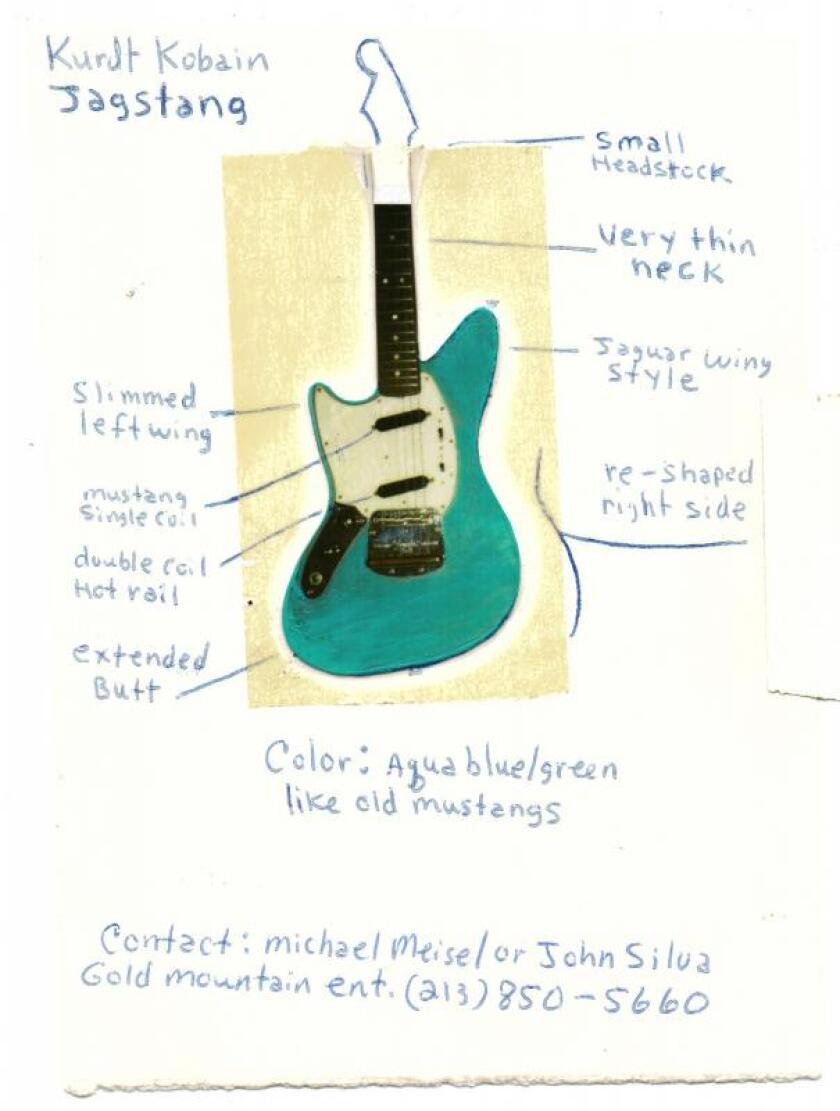 Kurdt Kobain
Jagstang
Small
Headstock
Very thin
neck
Jaguar wing
Style
Slimmed
left wing
re-shaped
right side
mustang
Single coil
double coil
Hot rail
extended
Butt
Color: Aqua blue/green
like old mustangs
Contact: michael Meisel/or John Silva
Gold mountain ent. (213) 850-5660